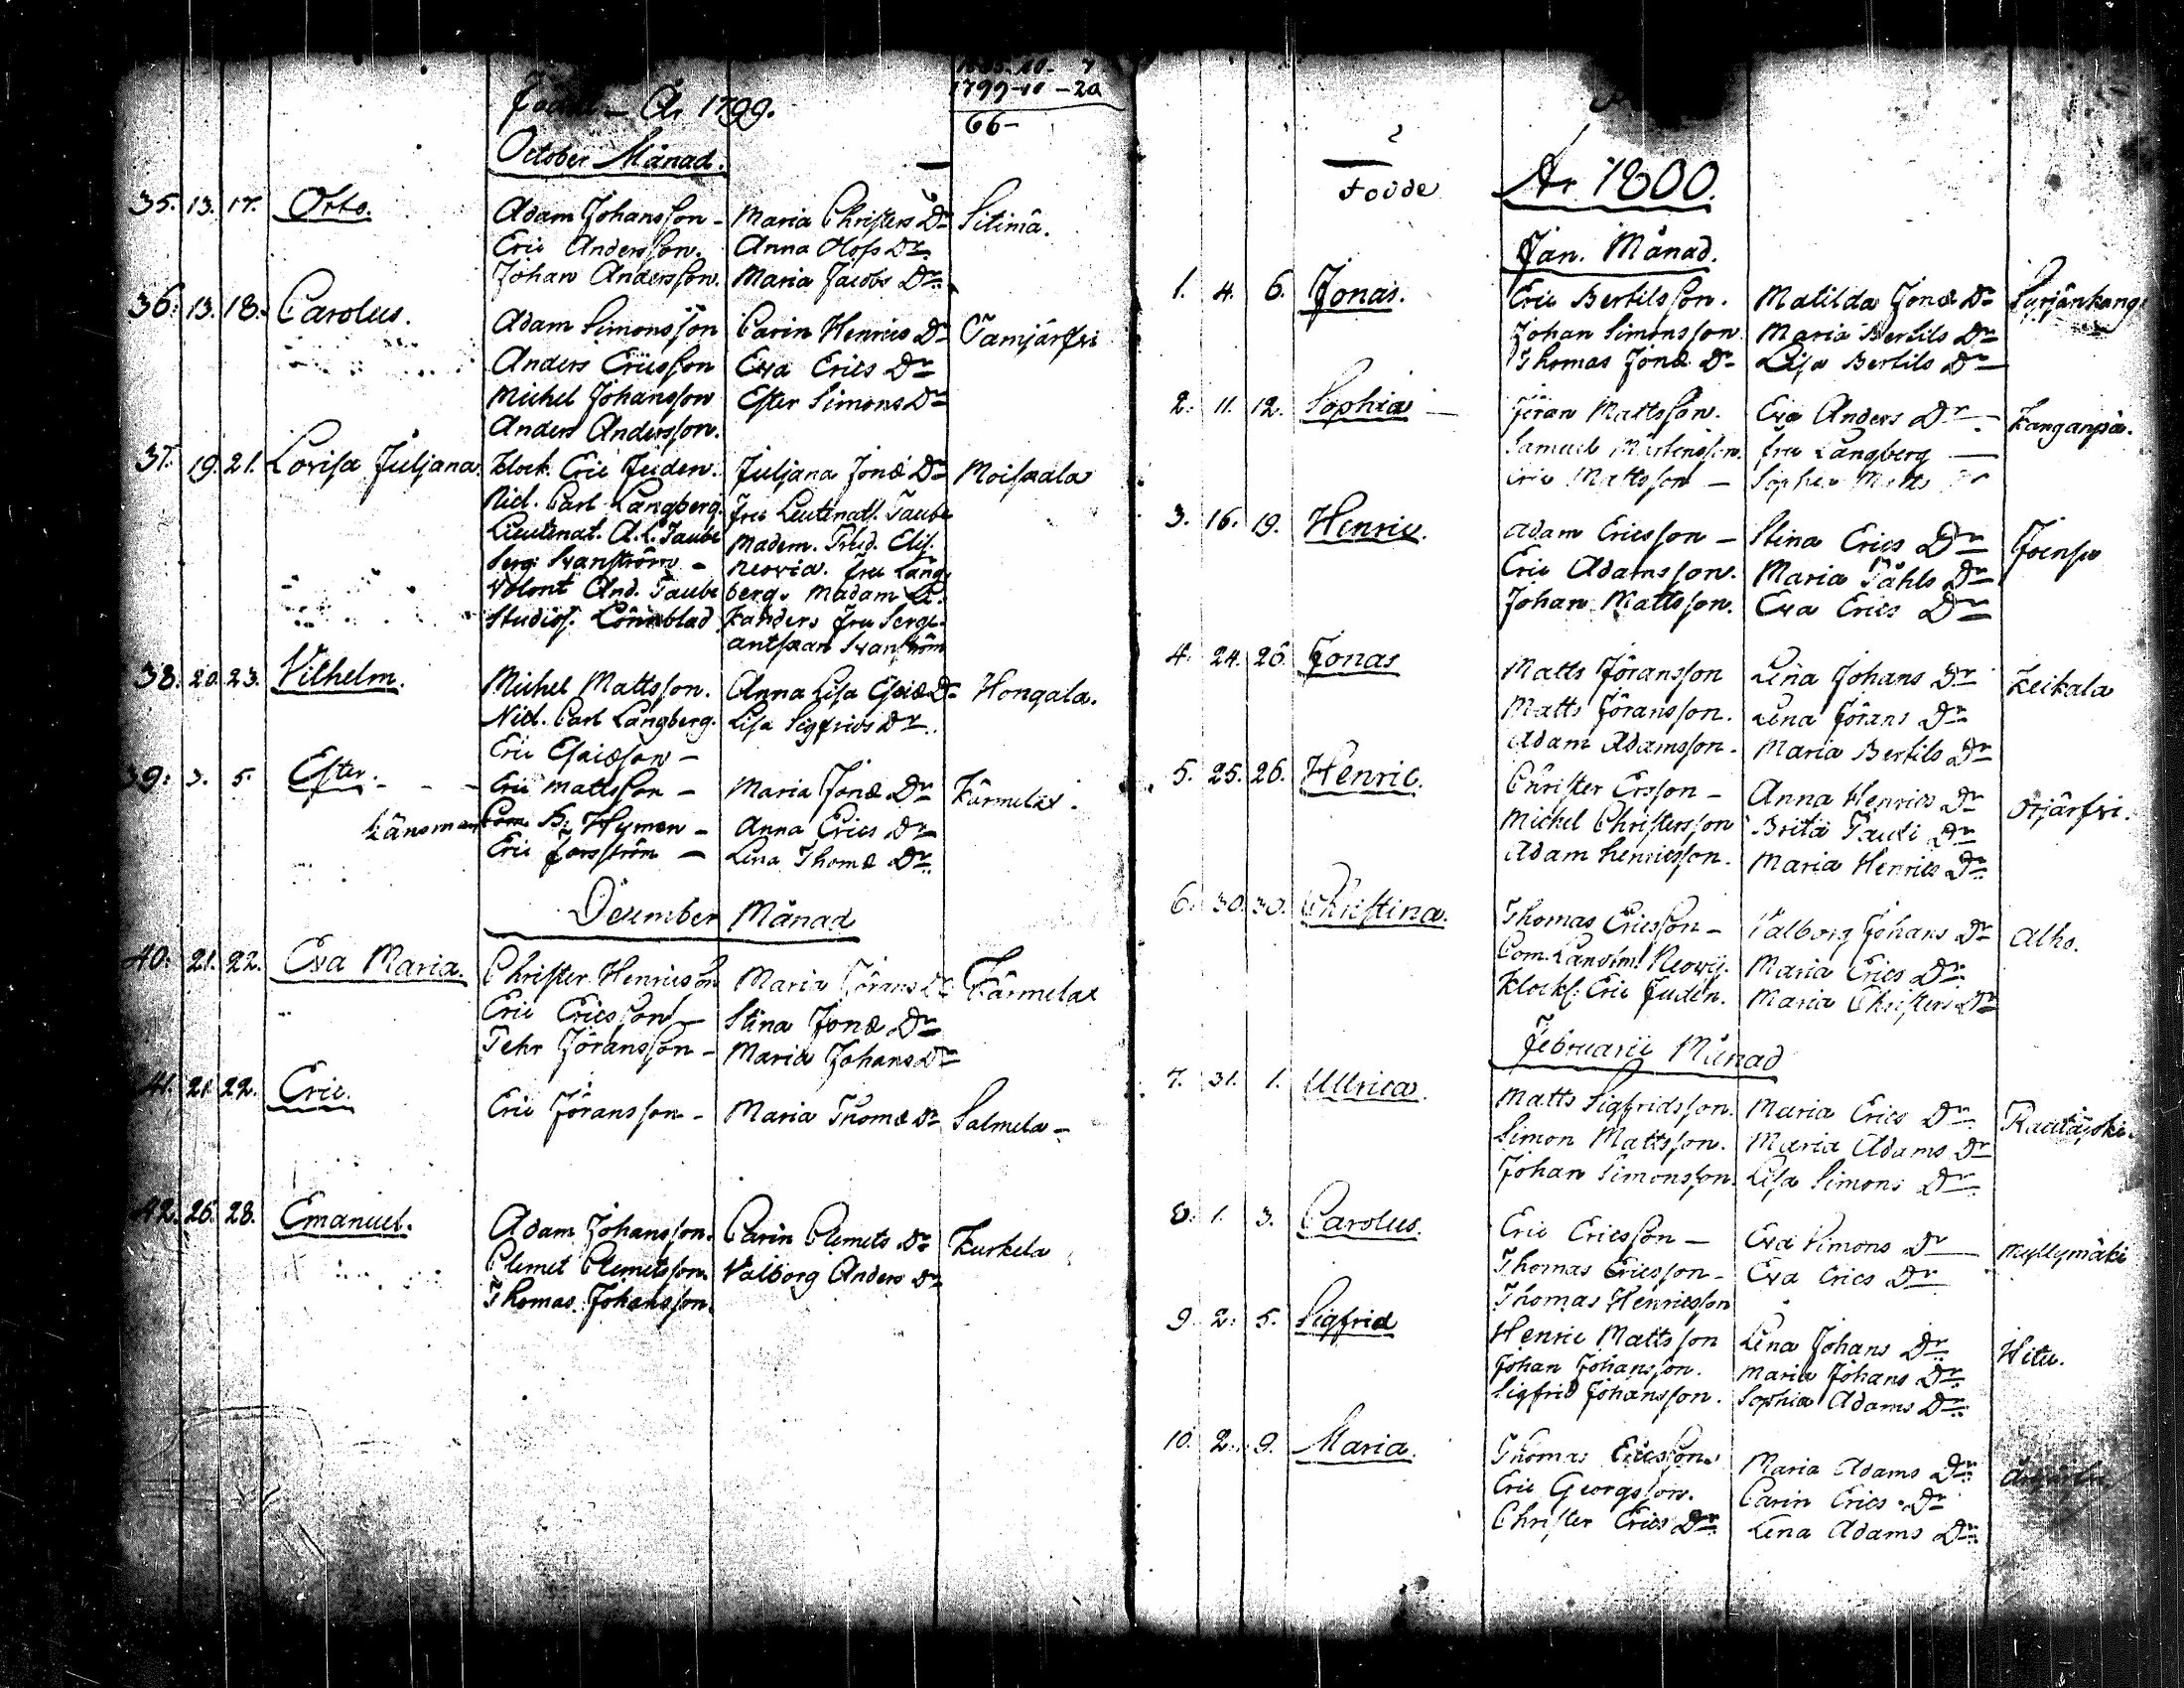 Födde År 1799.
1799-10-20
66-
October Månad.
35. 13. 17. Otto. Adam Johansson - Maria Christers Dr Sitimä.
Eric Andersson. Anna Olofs Dr
Johan Andersson. Maria Jacobs Dr
36. 13. 18. Carolus. Adam Simonsson Carin Henrics Dr Tamjärfvi
Anders Ericsson Eva Erics Dr
Michel Johansson Ester Simons Dr
Anders Andersson.
37. 19. 21. Lovisa Juljana. Klock. Eric Juden. Juljana Jonæ Dr Moisala
Nicl. Carl Långberg. fru Leutenatl. Taube
Lieutenat. A. L. Taube Madem. Elis.
Serg. Svanström - Neovia. fru Lång
Volont And. Taube berg. Madam
Studios. Lönnblad fru Serge
antskan Svanström
38. 20. 23. Vilhelm. Michel Mattsson. Anna Lisa Esaiæ Dr Hongala.
Nicl. Carl Långberg. Lisa Sigfrids Dr
Eric Esaiæson -
39. 3. 5. Ester. - - Eric Mattsson - Maria Jonæ Dr Kärmelax.
Länsman Hymen - Anna Erics Dr
Eric Forsström - Lena Thomæ Dr
December Månad
40. 21. 22. Eva Maria. Christer Henricson Maria Jörans Dr Kärmelax
Eric Ericsson - Stina Jonæ Dr
Pehr Jöransson - Maria Johans Dr
41. 21. 22. Eric. Eric Jöransson - Maria Thomæ Dr Salmela -
42. 26. 28. Emanuel. Adam Johansson. Carin Clemets Dr Kurkela
Clemet Clemetsson. Valborg Anders Dr
Thomas Johansson.
Födde År 1800.
Jan. Månad.
1. 4. 6. Jonas. Eric Bertilsson. Matilda Jonæ Dr
Johan Simonsson Maria Bertils Dr
Thomas Jonæ Dr Lisa Bertils Dr
2. 11. 12. Sophia - Jöran Mattsson. Eva Anders Dr Kanganpä.
Samuel Mårtensson. fru Långberg -
Eric Mattsson - Sophia Matts Dr
3. 16. 19. Henric. Adam Ericsson - Stina Erics Dr Joensu
Eric Adamsson. Maria Påhls Dr
Johan Mattsson. Eva Erics Dr
4. 24. 26. Jonas Matts Jöransson Lena Johans Dr Keikala
Matts Jöransson. Lena Jörans Dr
Adam Adamsson. Maria Bertils Dr
5. 25. 26. Henric. Christer Ersson - Anna Henrics Dr Orjärfvi.
Michel Christersson Brita Pauli Dr
Adam Henricsson. Maria Henrics Dr
6. 30. 30. Christina. Thomas Ericsson - Valborg Johans Dr Alho.
Com. Landtm. Neovij. Maria Erics Dr
Klocks. Eric Juden. Maria Christers Dr
Februarii Månad
7. 31. 1. Ullrica. Matts Sigfridsson. Maria Erics Dr
Simon Mattsson. Maria Adams Dr
Johan Simonsson. Lisa Simons Dr
8. 1. 3. Carolus. Eric Ericsson - Eva Simons Dr Myllymäki
Thomas Ericsson - Eva Erics Dr
Thomas Henricsson
9. 2. 5. Sigfrid Henric Mattsson Lena Johans Dr Hitu.
Johan Johansson. Maria Johans Dr
Sigfrid Johansson. Sophia Adams Dr
10. 2. 9. Maria. Thomas Ericsson. Maria Adams Dr
Eric Georgsson. Carin Erics Dr
Christer Erics Dr Lena Adams Dr